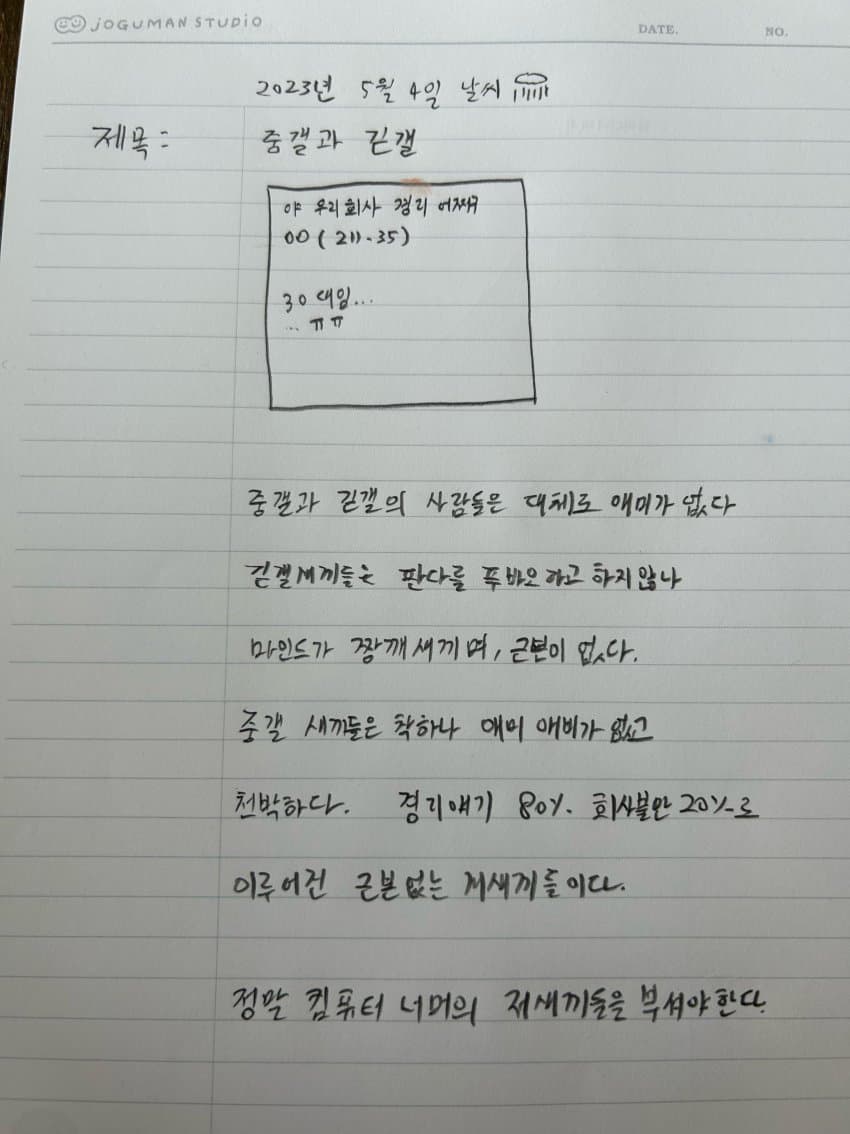 JOGUMAN STUDIO
DATE.
NO.
2023년 5월 4일 날씨
제목: 중갤과 긷갤
야 우리회사 경리 어쩌구
00(211.35)
30대임...
... ㅠㅠ
중갤과 긷갤의 사람들은 대체로 애미가 없다
긷갤새끼들은 판다를 푸바오라고 하지않나
마인드가 짱깨새끼며, 근본이 없다.
중갤 새끼들은 착하나 애미 애비가 없고
천박하다. 경리얘기 80%. 회사불만 20%로
이루어진 근본없는 저새끼들이다.
정말 컴퓨터 너머의 저새끼들을 부셔야한다.